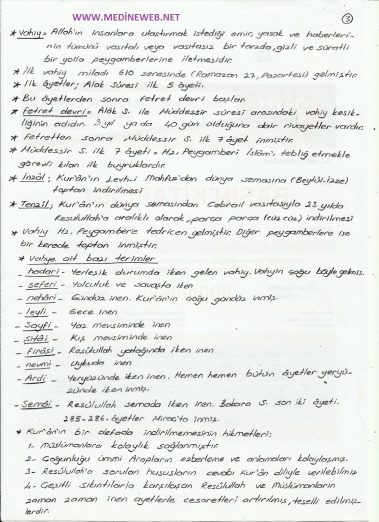 www.MEDİNEWEB.NET
3
* Vahiy = Allah'ın insanlara ulaştırmak istediği emir, yasak ve haberleri-
nin tümünü vasıtalı veya vasıtasız bir tarzda, gizli ve süratli
bir yolla peygamberlerine iletmesidir.
* İlk vahiy miladi 610 senesinde (Ramazan 27, Pazartesi) gelmiştir.
* İlk âyetler; Alak Sûresi ilk 5 âyeti.
* Bu âyetlerden sonra fetret devri başlar.
* Fetret devri = Alâk S. ile Müddessir sûresi arasındaki vahiy kesik-
liğinin adıdır. 3 yıl ya da 40 gün olduğuna dair rivayetler vardır.
* Fetretten sonra Müddessir S. ilk 7 âyet inmiştir.
* Müddessir S. ilk 7 âyeti = Hz. Peygamberi İslâm'ı tebliğ etmekle
görevli kılan ilk buyruklardır.
* İnzâl; Kur'ân'ın Levh-i Mahfuz'dan dünya semasına (Beytül-İzze)
toptan indirilmesi
* Tenzil; Kur'ân'ın dünya semasından Cebrail vasıtasıyla 23 yılda
Resûlullah'a aralıklı olarak, parça parça (cüz cüz) indirilmesi
* Vahiy Hz. Peygambere tedricen gelmiştir. Diğer peygamberlere ise
bir kerede toptan inmiştir.
* Vahye ait bazı terimler
- hadari - Yerleşik durumda iken gelen vahiy. Vahyin çoğu böyle gelmiş.
- seferi - Yolculuk ve savaşta iken
- nehâri - Gündüz inen. Kur'ân'ın çoğu gündüz inmiş.
- leyli - Gece inen
- Sayfi - Yaz mevsiminde inen
- şitâi - Kış mevsiminde inen
- firâşi - Resûlullah yatağında iken inen
- nevmi - Uykuda inen
- Ardi - Yeryüzünde iken inen. Hemen hemen bütün âyetler yeryü-
zünde iken inmiş.
- Semâi - Resûlullah semada iken inen. Bakara S. son iki âyeti.
285-286. âyetler Mirac'ta inmiş.
* Kur'ân'ın bir defada indirilmemesinin hikmetleri:
1- Müslümanlara kolaylık sağlanmıştır
2- Çoğunluğu ümmi Arapların ezberleme ve anlamaları kolaylaşmış.
3- Resûlullah'a sorulan hususların cevabı Kur'ân diliyle verilebilmiş
4- Çeşitli sıkıntılarla karşılaşan Resûlullah ve Müslümanların
zaman zaman inen ayetlerle cesaretleri artırılmış, teselli edilmiş-
lerdir.